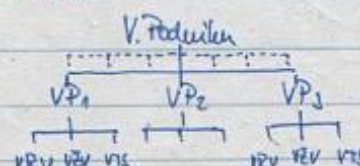 V. Podniku
VP₁ VP₂ VP₃
VRV VŽV VTS VRV VŽV